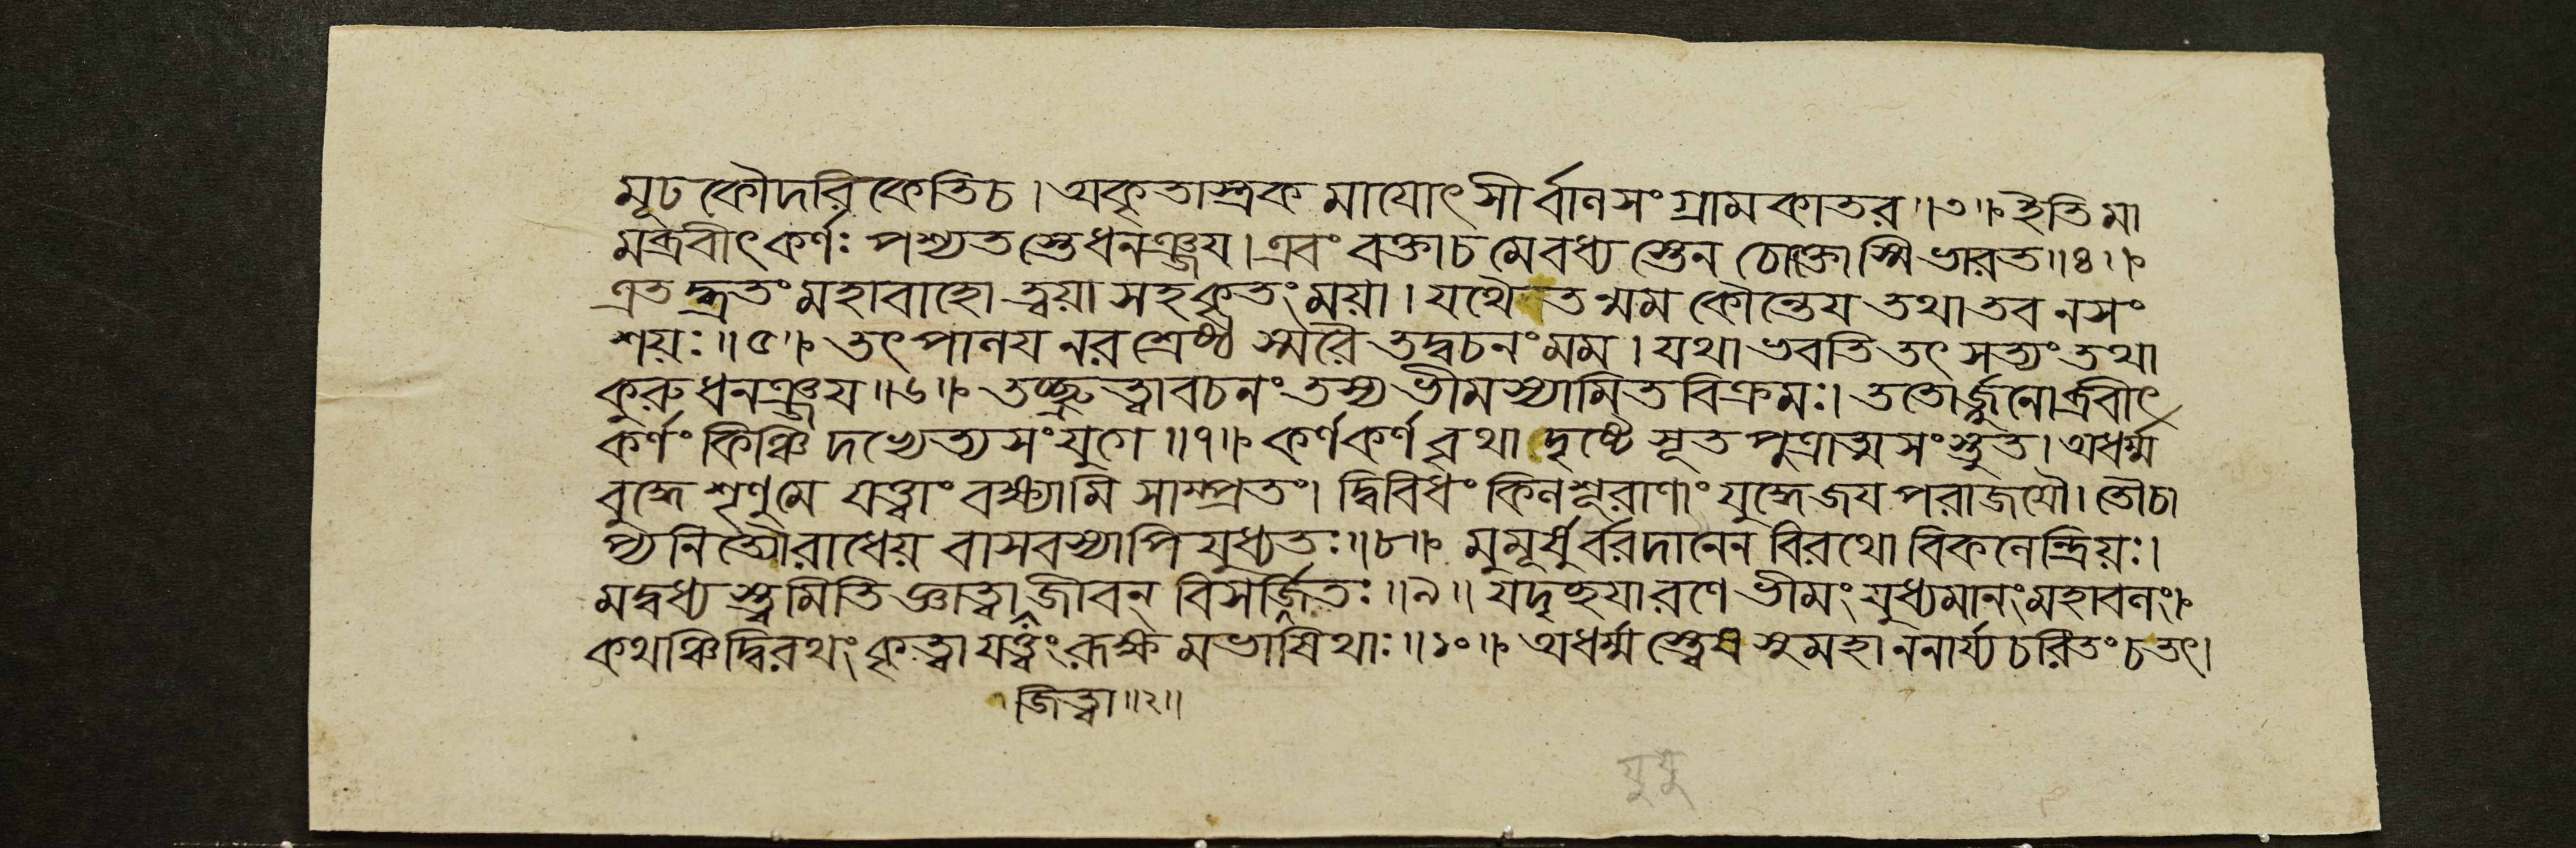 মূঢকৌদরিকেতিচ। অকৃতাস্ত্রকমাযোৎসীর্ব্বানসংগ্রামকাতর॥৩॥ ইতিমা
মব্রবীৎকর্ণঃ পশ্যতস্তেধনঞ্জয। এবং বক্তাচমেবধ্যস্তেনচোক্তাস্মিভারত॥৪॥
এতদ্ব্রতংমহাবাহো ত্বয়া সহকৃতংময়া। যথৈতন্মমকৌন্তেয তথাতবনসং
শয়ঃ॥৫॥ তৎপানযনরশ্রেষ্ঠ স্মরৈতদ্বচনংমম। যথাভবতিতৎসত্যংতথা
কুরুধনঞ্জয॥৬॥ তচ্ছ্রুত্বাবচনংতস্য ভীমস্যামিতবিক্রমঃ। ততোর্জ্জুনোব্রবীৎ
কর্ণং কিঞ্চিদভ্যেত্যসংযুগে॥৭॥ কর্ণকর্ণবৃথাদৃষ্টে সূতপুত্রাত্মসংস্তুত। অধর্ম্ম
বুদ্ধেশৃণুমে যত্ত্বাংবক্ষ্যামি সাম্প্রতং। দ্বিবিধং কিনশূরাণাং যুদ্ধেজযপরাজযৌ। তৌচা
প্যনিত্যৌরাধেয় বাসবস্যাপিযুধ্যতঃ॥৮॥ মুমূর্ষুর্বরদানেন বিরথোবিকনেন্দ্রিয়ঃ।
মদ্বধ্যস্ত্বমিতিজ্ঞাত্বাজীবন্ বিসর্জ্জিতঃ॥৯॥ যদৃচ্ছযারণেভীমংযুধ্যমানংমহাবনং।
কথঞ্চিদ্বিরথংকৃত্বাযত্ত্বংরূক্ষমভাষিথাঃ॥১০॥ অধর্ম্মস্ত্বেষসুমহাননার্য্যচরিতংচতৎ।
জিত্বা॥২॥